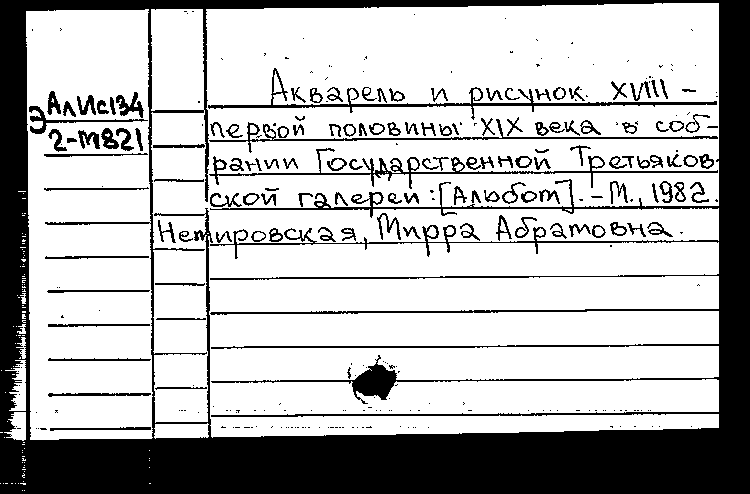 Э АлИс134
2-М821
Акварель и рисунок XVIII -
первой половины XIX века в соб-
рании Государственной Третьяков-
ской галереи : [Альбом]. - М., 1982.
Немировская, Мирра Абрамовна.